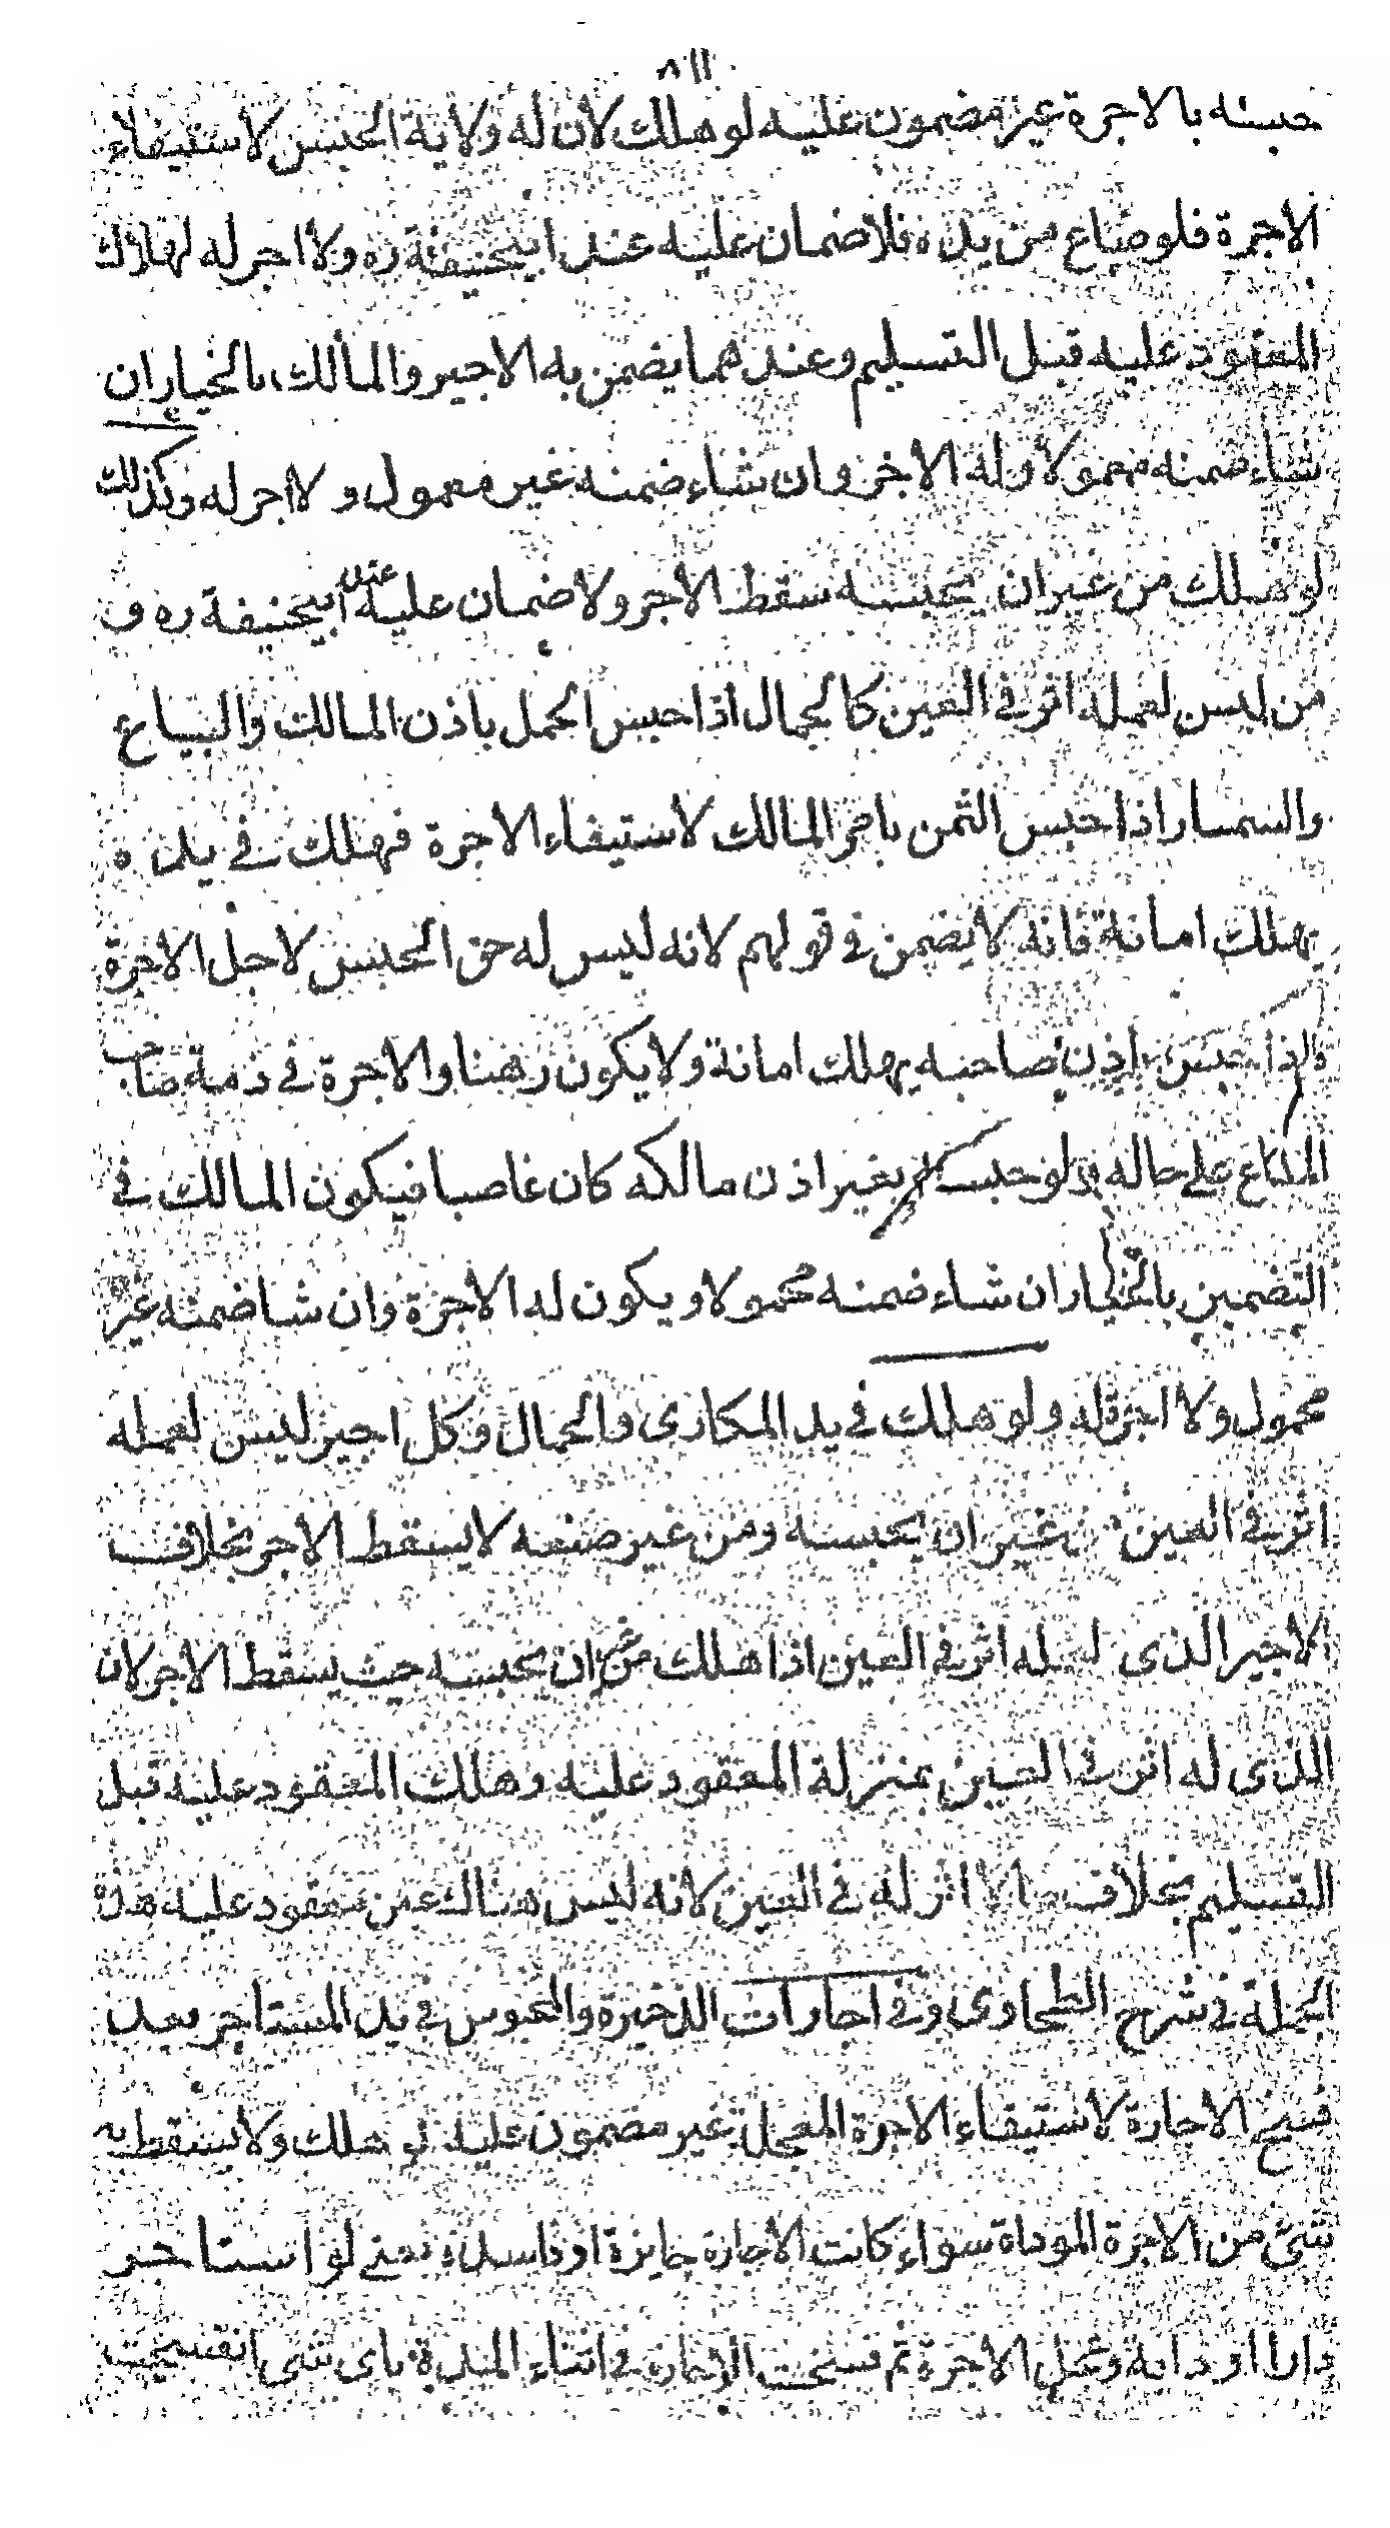 حبسه بالاجرة غير مضمون عليه لو هلك لان له ولاية الحبس لاستيفاء
الاجرة فلو ضاع من يده فلا ضمان عليه عند ابيحنيفة ره ولا اجر له لهلاك
المعقود عليه قبل التسليم وعندهما يضمن به الاجير والمالك بالخيار ان
شاء ضمنه معمولا وله الاجر وان شاء ضمنه غير معمول ولا اجر له وكذلك
لو هلك من غير ان يحبسه سقط الاجر ولا ضمان عليه عند ابيحنيفة ره و
من ليس لعمله اثر في العين كالجمال اذا حبس الحمل باذن المالك والبياع
والسمسار اذا حبس الثمن بامر المالك لاستيفاء الاجرة فهلك في يده
يهلك امانة فانه لا يضمن في قولهم لانه ليس له حق الحبس لاجل الاجرة
اذا حبس اذن صاحبه يهلك امانة ولا يكون رهنا والاجرة في ذمة صاحب
المتاع على حاله ولو حبسه بغير اذن مالكه كان غاصبا فيكون المالك في
التضمين بالخيار ان شاء ضمنه محمولا ويكون له الاجرة وان شا ضمنه غير
محمول ولا اجر له ولو هلك في يد المكارى والحمال وكل اجير ليس لعمله
اثر في العين من غير ان يحبسه ومن غير صنعه لا يسقط الاجر بخلاف
الاجير الذى لعمله اثر في العين اذا هلك من غير ان يحبسه حيث يسقط الاجر لان
الذى له اثر في العين بمنزلة المعقود عليه وهلك المعقود عليه قبل
التسليم بخلاف ما لا اثر له في العين لانه ليس هناك عين معقود عليه هذه
الجملة في شرح الطحاوى وفي اجارات الذخيرة والمحبوس في يد المستاجر بعد
فسخ الاجارة لاستيفاء الاجرة المعجل غير مضمون عليه لو هلك ولا يسقط به
شئ من الاجرة الموداة سواء كانت الاجارة جايزة او فاسدة يعنى لو استاجر
دارا او دابة وعجل الاجرة ثم فسخت الاجارة في اثناء المدة باى شى انفسخت